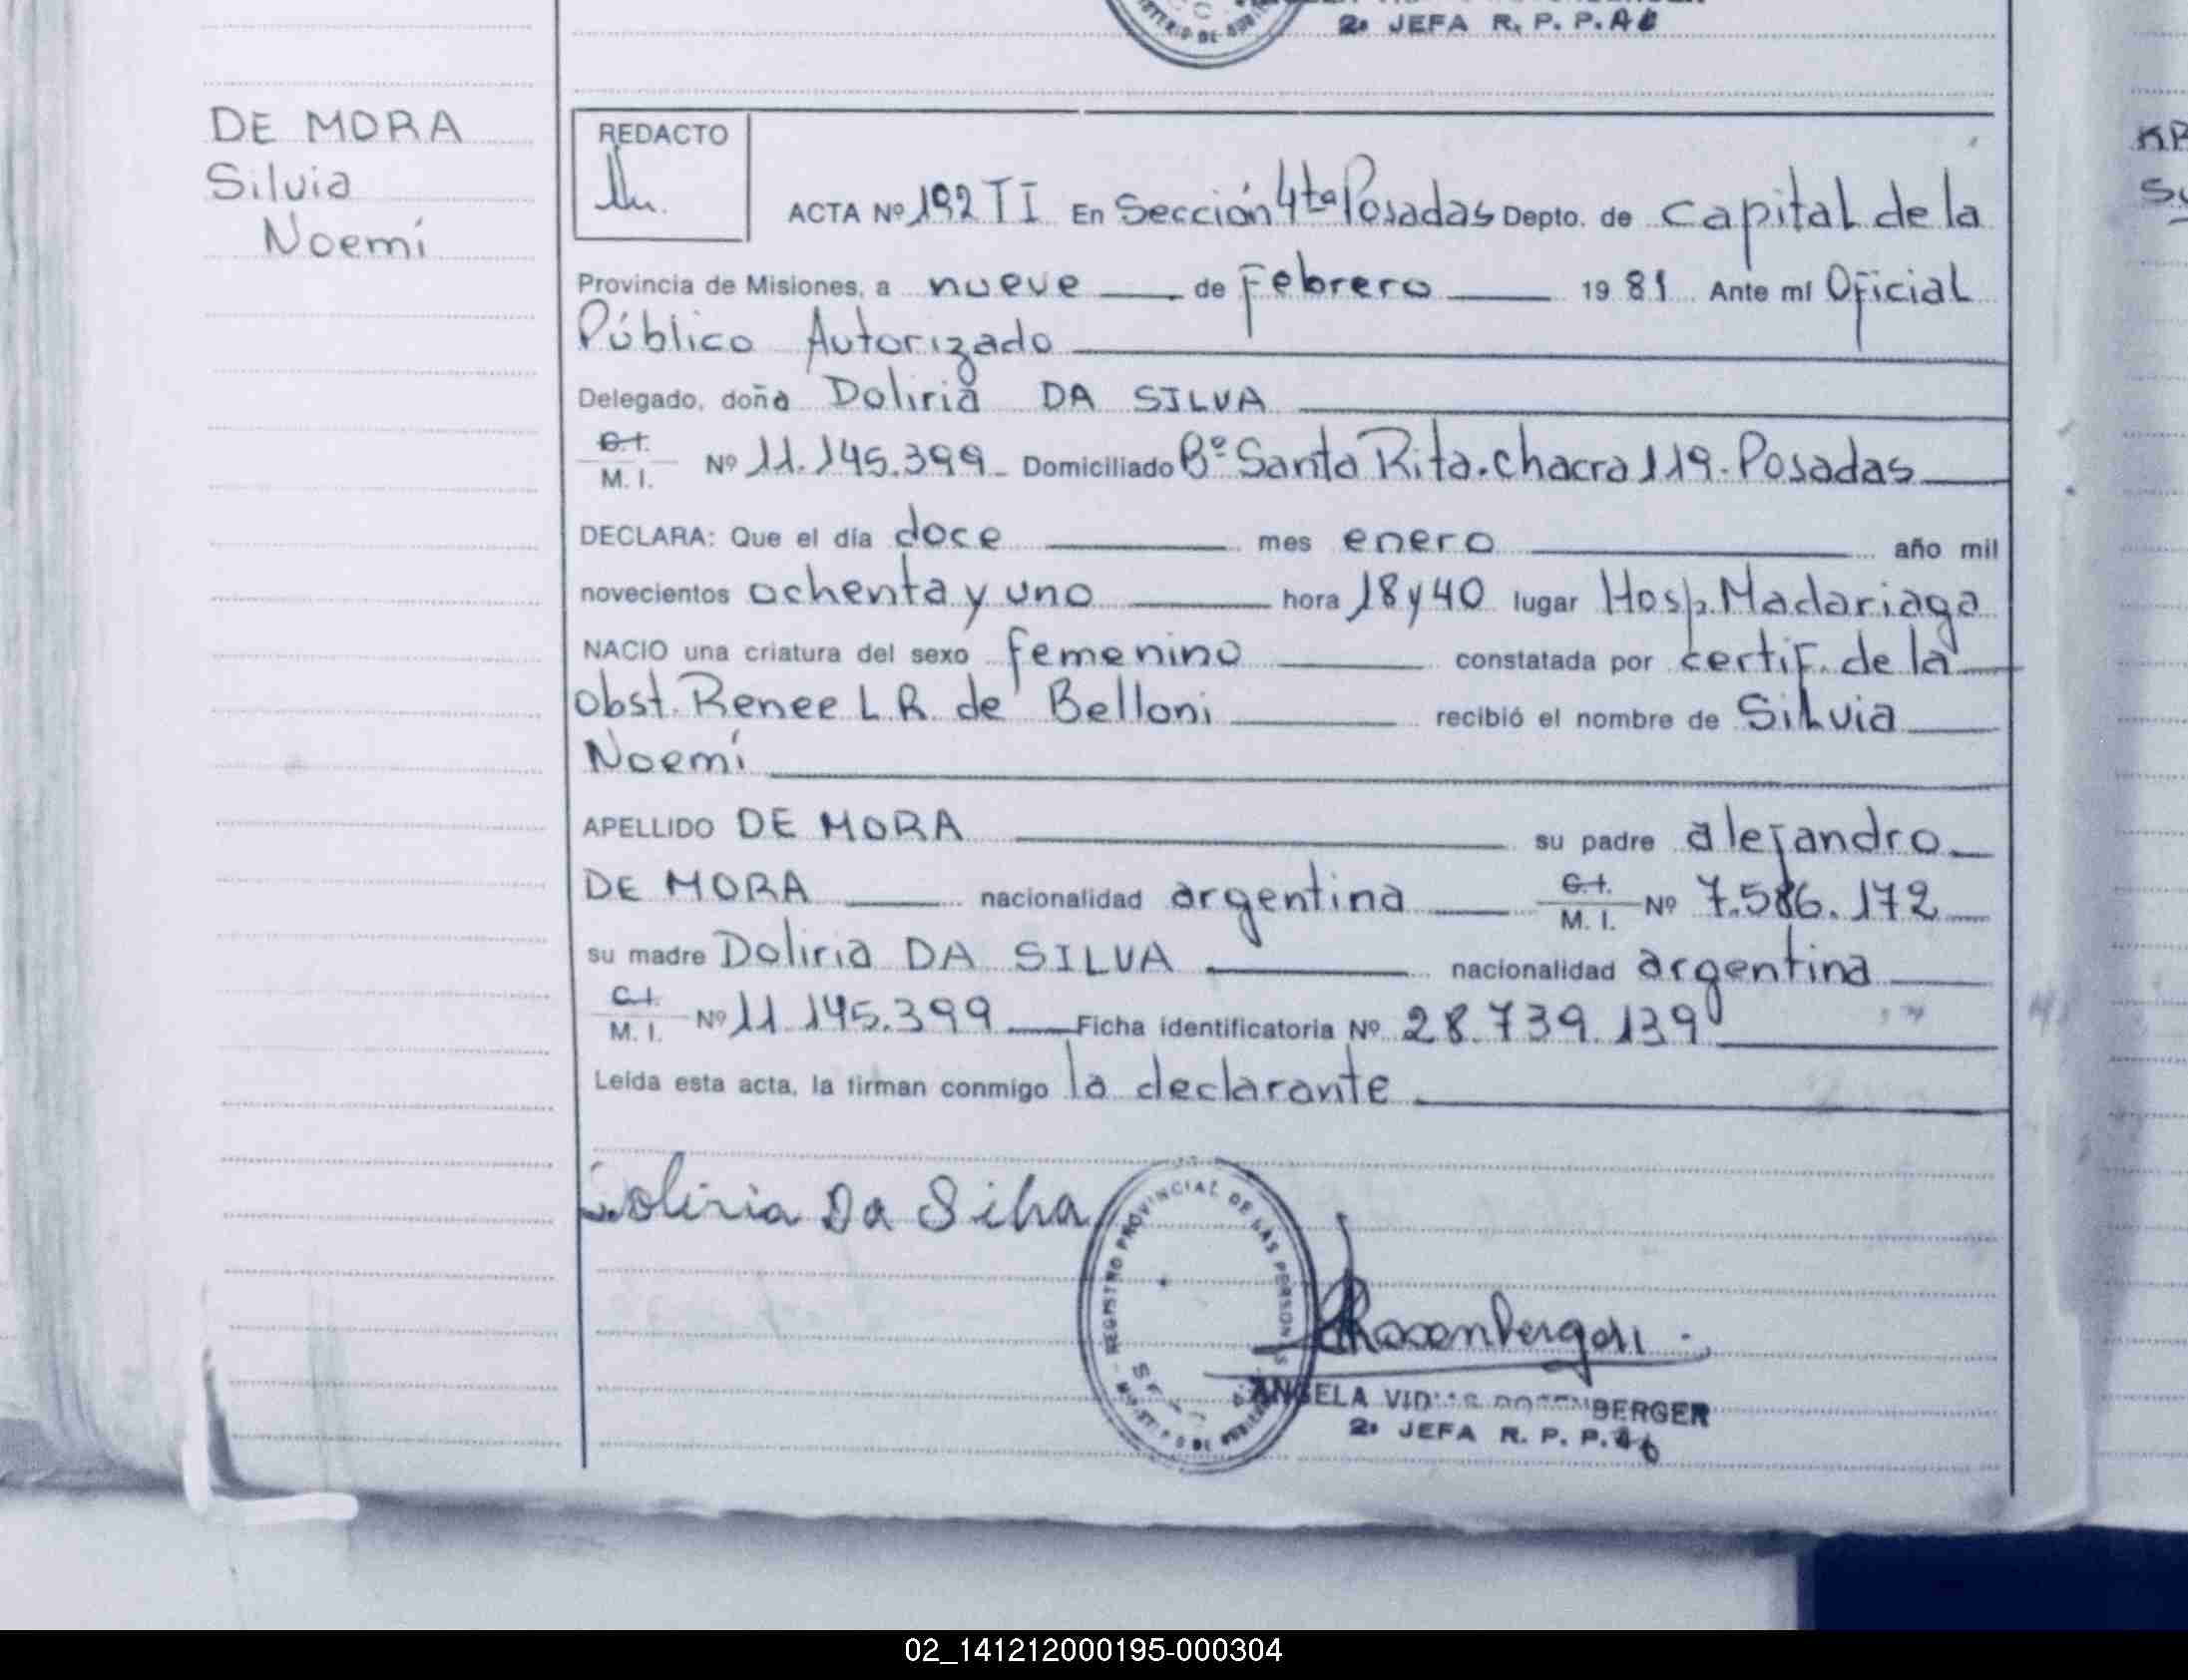 2º JEFA R. P. P.
DE MORA
Silvia
Noemí
REDACTO
ACTA Nº 192 TI En Sección 4ta Posadas Depto. de capital de la
Provincia de Misiones, a nueve de Febrero 19 81 Ante mí Oficial
Público Autorizado
Delegado, doña Doliria DA SILVA
C.I.
M. I. Nº 11.145.399 Domiciliado Bº Santa Rita. chacra 119. Posadas
DECLARA: Que el día doce mes enero año mil
novecientos ochenta y uno hora 18 y 40 lugar Hosp. Madariaga
NACIO una criatura del sexo femenino constatada por certif. de la
obst. Renee L. R. de Belloni recibió el nombre de Silvia
Noemí
APELLIDO DE MORA su padre alejandro
DE MORA nacionalidad argentina C.I. M. I. Nº 7.586.172
su madre Doliria DA SILVA nacionalidad argentina
C.I.
M. I. Nº 11.145.399 Ficha identificatoria Nº 28.739.139
Leída esta acta, la firman conmigo la declarante
Doliria Da Silva
REGISTRO PROVINCIAL DE LAS PERSONAS
Rosenberger
ANGELA ROSENBERGER
2º JEFA R. P. P.
02_141212000195-000304